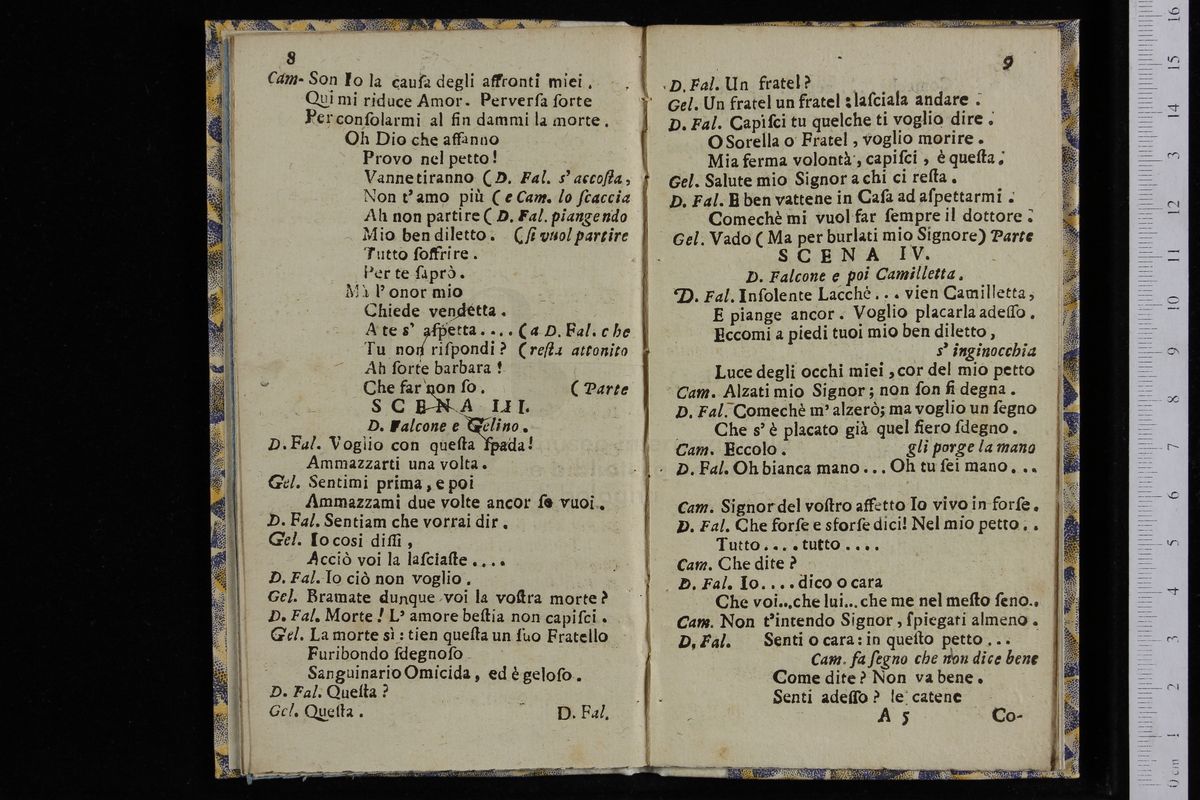 8
Cam- Son Io la cauſa degli affronti miei.
Qui mi riduce Amor. Perverſa ſorte
Per conſolarmi al fin dammi la morte.
Oh Dio che affanno
Provo nel petto!
Vanne tiranno (D. Fal. s' accoſta,
Non t' amo più (e Cam. lo ſcaccia
Ah non partire (D. Fal. piangendo
Mio ben diletto. (ſi vuol partire
Tutto ſoffrire.
Per te ſaprò.
Mà l' onor mio
Chiede vendetta.
A te s' aſpetta.... (a D. Fal. che
Tu non riſpondi? (reſta attonito
Ah ſorte barbara!
Che far non ſo. (Parte
SCENA III.
D. Falcone e Gelino.
D. Fal. Voglio con queſta ſpada!
Ammazzarti una volta.
Gel. Sentimi prima, e poi
Ammazzami due volte ancor ſe vuoi.
D. Fal. Sentiam che vorrai dir.
Gel. Io cosi diſſi,
Acciò voi la laſciaſte....
D. Fal. Io ciò non voglio.
Gel. Bramate dunque voi la voſtra morte?
D. Fal. Morte! L' amore beſtia non capiſci.
Gel. La morte sì: tien queſta un ſuo Fratello
Furibondo ſdegnoſo
Sanguinario Omicida, ed è geloſo.
D. Fal. Queſta?
Gel. Queſta.
D. Fal.
9
D. Fal. Un fratel?
Gel. Un fratel un fratel: laſciala andare.
D. Fal. Capiſci tu quelche ti voglio dire.
O Sorella o Fratel, voglio morire.
Mia ferma volontà, capiſci, è queſta.
Gel. Salute mio Signor a chi ci reſta.
D. Fal. E ben vattene in Caſa ad aſpettarmi.
Comechè mi vuol far ſempre il dottore.
Gel. Vado (Ma per burlati mio Signore) Parte
SCENA IV.
D. Falcone e poi Camilletta.
D. Fal. Inſolente Lacchè... vien Camilletta,
E piange ancor. Voglio placarla adeſſo.
Eccomi a piedi tuoi mio ben diletto,
s' inginocchia
Luce degli occhi miei, cor del mio petto
Cam. Alzati mio Signor; non ſon ſi degna.
D. Fal. Comechè m' alzerò; ma voglio un ſegno
Che s' è placato già quel fiero ſdegno.
Cam. Eccolo. gli porge la mano
D. Fal. Oh bianca mano... Oh tu ſei mano...
Cam. Signor del voſtro affetto Io vivo in forſe.
D. Fal. Che forſe e sforſe dici! Nel mio petto..
Tutto.... tutto....
Cam. Che dite?
D. Fal. Io.... dico o cara
Che voi...che lui...che me nel meſto ſeno..
Cam. Non t'intendo Signor, ſpiegati almeno.
D. Fal. Senti o cara: in queſto petto...
Cam. fa ſegno che non dice bene
Come dite? Non va bene.
Senti adeſſo? le catene
A 5 Co-